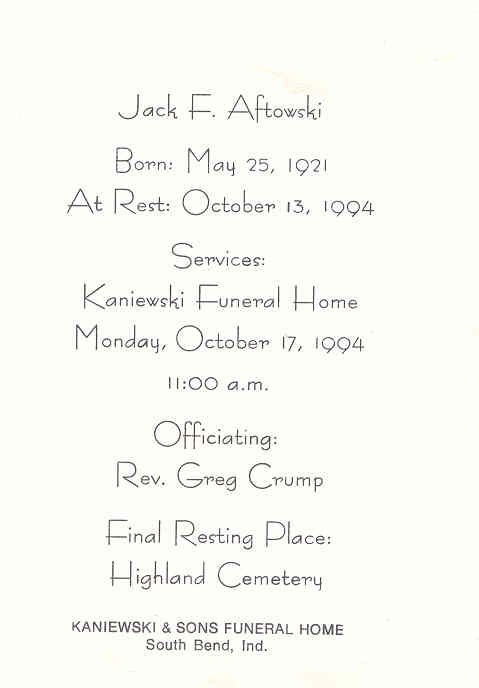 Jack F. Aftowski
Born: May 25, 1921
At Rest: October 13, 1994
Services:
Kaniewski Funeral Home
Monday, October 17, 1994
11:00 a.m.
Officiating:
Rev. Greg Crump
Final Resting Place:
Highland Cemetery
KANIEWSKI & SONS FUNERAL HOME
South Bend, Ind.